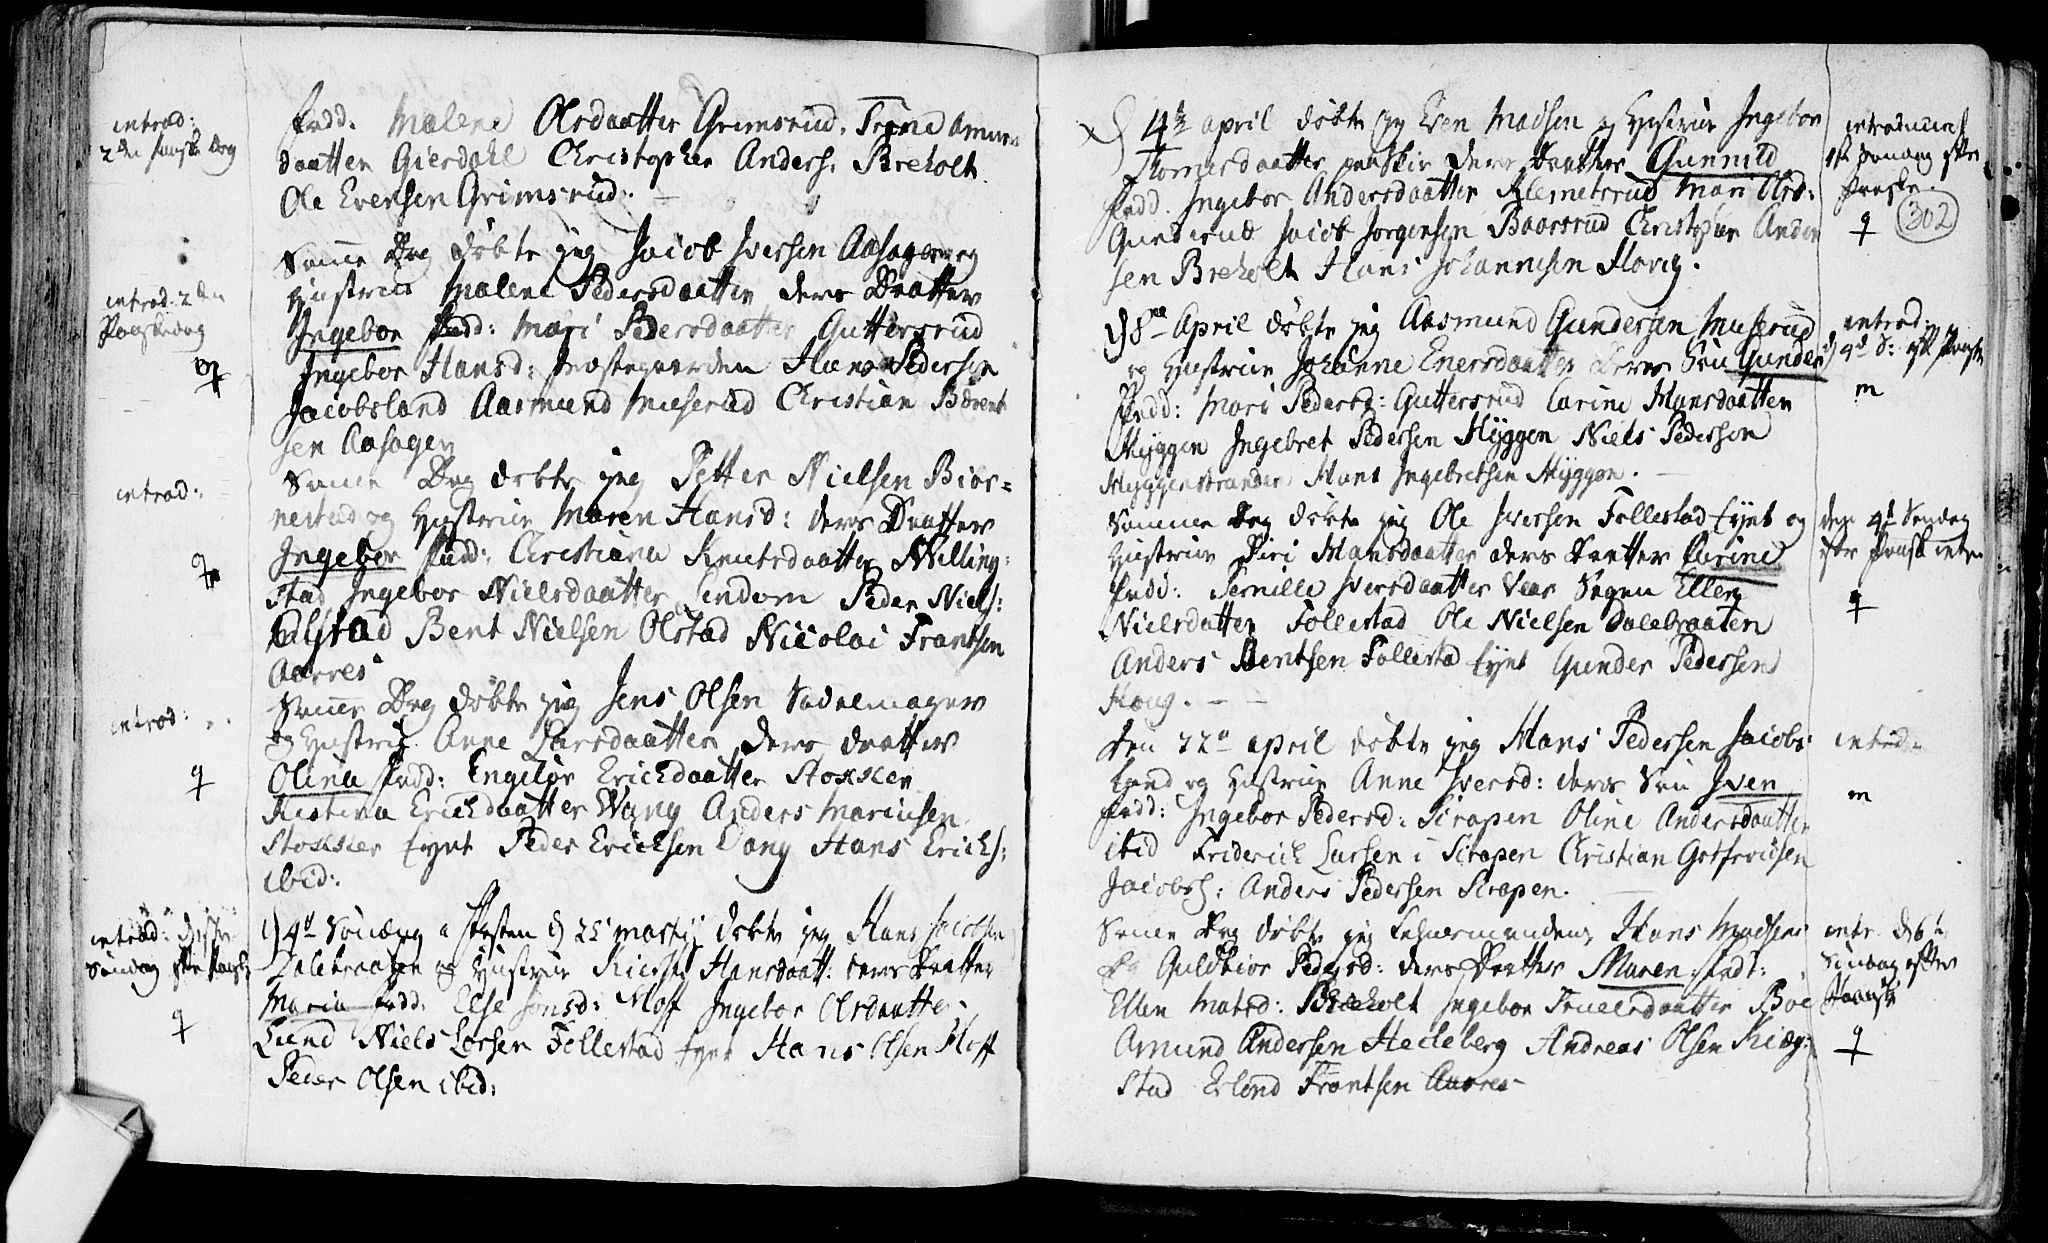 introd:
2den Paaske Dag
Fadd. Malene Olsdaatter Grimsrud, Trine Amun
daatter Gierdahl Christopher Anders. Breholt
Ole Evensen Grimsrud.
introd. 2den
Paaskedag
q
Samme Dag döbte jeg Jacob Iversen Aasagen og
Hustrue Malene Pedersdaatter ders Daatter
Ingebor Fadd: Mari Pedersdaatter Guttersrud
Ingebor Hansd: Prestegaarden Hans Pedersen
Jacobsland Aasmund Muserud Christian Bærent
sen Aasagen
introd:
q
Samme Dag döbte jeg Petter Nielsen Biör=
nestad og Hustrue Maren Hansd: ders Daatter
Ingebor Fadd: Christiana Knutsdaatter Nilling:
stad Ingebor Nielsdaatter Peder Niels:
Bent Nielsen Olstad Nicolai Frantsen
Aarres
introd:
q
Samme Dag döbte jeg Jens Olsen Sadelmager
og Hustrue Anne Larsdaatter ders daatter
Olina Fadd: Engebor Erichdaatter Stokker
Kistina Erichdaatter Wang Anders Mariusen
Stokker Eyet Peder Erichsen Wang Hans Erichs:
ibid:
introd: d. 1ste
Söndag efter Paaske
q
D 4de Söndag i Fasten d 25 martij döbte jeg Hans Jacobsen
Dalebraaten og Hustrue Hansdaatt: ders daatter
Maria Fadd: Else Jonsd: Hoff Ingebor Olsdaatter
Lund Niels Larsen Follestad Eyet Hans Olsen Hoff
Peder Olsen ibid:
D 4de april döbte jeg Even Madsen og Hustrue Ingebor
Tomesdaatter ders Daatter Gunnild
Fadd. Ingebor Andersdaatter Klemetsrud Mari Olsd:
Gunderud Jacob Jorgensen Baarsrud Christopher Ander
sen Breholt Hans Johannesen Hovig.
introduceret
1ste Söndag efter
Paaske.
q
302
D 8de April döbte jeg Aasmund Gundersen Muserud
og Hustrue Johanne Enersdaatter deres Sön Gunder
Fadd: Mari Pedersd: Guttersrud Carine Hansdaatter
Hyggen Ingebret Pedersen Hyggen Niels Pedersen
Hyggenstranden Hans Ingebretsen Hyggen.
introd:
d 4de S: eft Paaske
m
Samme Dag döbte jeg Ole Iversen Follestad Eyet og
Hustrue Siri Hansdaatter ders Daatter Carine
Fadd: Pernille Iversdaatter Ellen
Nielsdatter Follestad Ole Nielsen Dalebraaten
Anders Bentsen Follestad Eyet Gunder Pedersen
Haug.
den 4de Söndag
efter Paaske intro
q
den 22de april döbte jeg Hans Pedersen Jacobs
land og Hustrue Anne Iversd: ders Sön Iven
Fadd: Ingebor Pedersd: Sirapen Oline Andersdaatter
ibid Friderich Larsen i Sirapen Christian Gotfredsen
Jacobs: Anders Pedersen Sirapen.
introd:
m
Samme Dag döbte jeg Hans Madsens
og Guldbior Pedersd: ders Daatter Maren Fadd:
Ellen Matsd: Breholt Ingebor Truelsdaatter Boe
Amund Andersen Hedeberg Andreas Olsen Kiæg:
stad Erland Frantsen Aarres
intr. D 6te
Söndag efter
Paaske
q